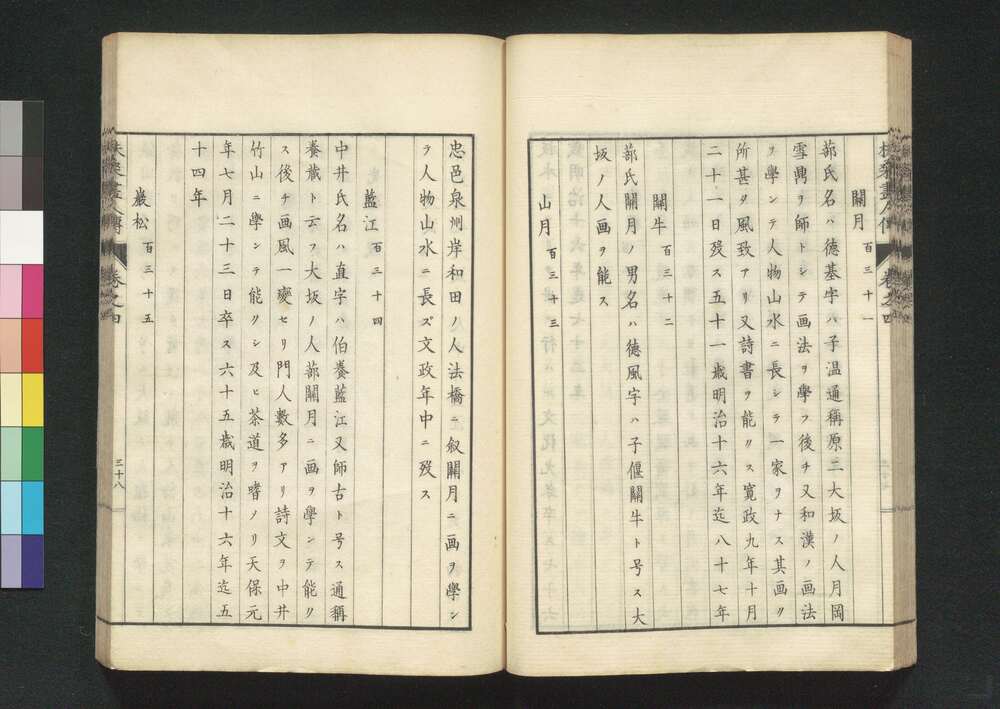 關月 百三十一
蔀氏名ハ德基字ハ子温通稱原二大坂ノ人月岡
雪鼎ヲ師トシテ画法ヲ學フ後チ又和漢ノ画法
ヲ學ンテ人物山水ニ長シテ一家ヲナス其画ク
所甚タ風致アリ又詩書ヲ能クス寛政九年十月
二十一日歿ス五十一歳明治十六年迄八十七年
關牛 百三十二
蔀氏關月ノ男名ハ德風字ハ子偃關牛ト号ス大
坂ノ人画ヲ能ス
山月 百三十三
忠邑泉州岸和田ノ人法橋ニ叙關月ニ画ヲ學ン
テ人物山水ニ長ズ文政年中ニ歿ス
藍江 百三十四
中井氏名ハ直字ハ伯養藍江又師古ト号ス通稱
養藏ト云フ大坂ノ人蔀關月ニ画ヲ學ンテ能ク
ス後チ画風一變セリ門人數多アリ詩文ヲ中井
竹山ニ學ンテ能クシ及ヒ茶道ヲ嗜ノリ天保元
年七月二十三日卒ス六十五歳明治十六年迄五
十四年
巖松 百三十五
卷之四
三十八